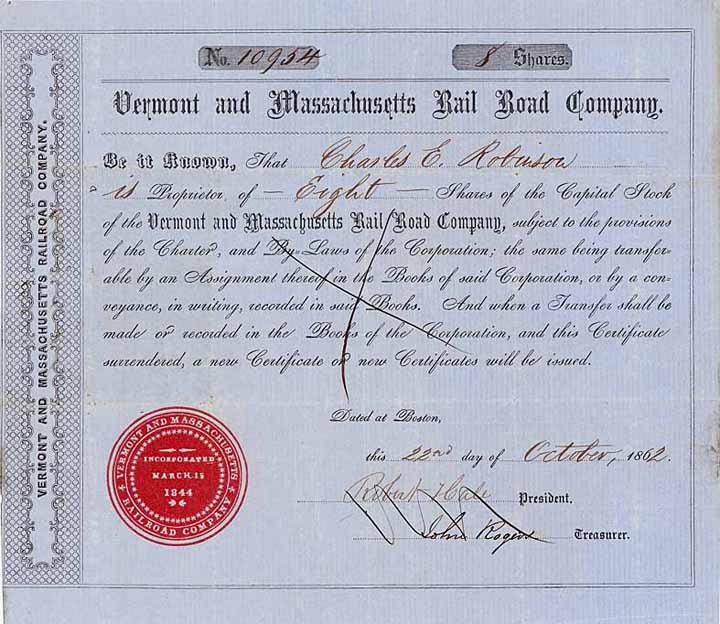 No. 10954
8 Shares.
Vermont and Massachusetts Rail Road Company.
Be it Known, That Charles E. Robinson
is Proprietor of — Eight — Shares of the Capital Stock
of the Vermont and Massachusetts Rail Road Company, subject to the provisions
of the Charter, and By-Laws of the Corporation; the same being transfer-
able by an Assignment thereof in the Books of said Corporation, or by a con-
veyance, in writing, recorded in said Books. And when a Transfer shall be
made or recorded in the Books of the Corporation, and this Certificate
surrendered, a new Certificate or new Certificates will be issued.
Dated at Boston,
this 22nd day of October, 1862.
Robert Hale President.
John Rogers Treasurer.
VERMONT AND MASSACHUSETTS RAILROAD COMPANY.
VERMONT AND MASSACHUSETTS
RAILROAD COMPANY
INCORPORATED
MARCH. 15
1844